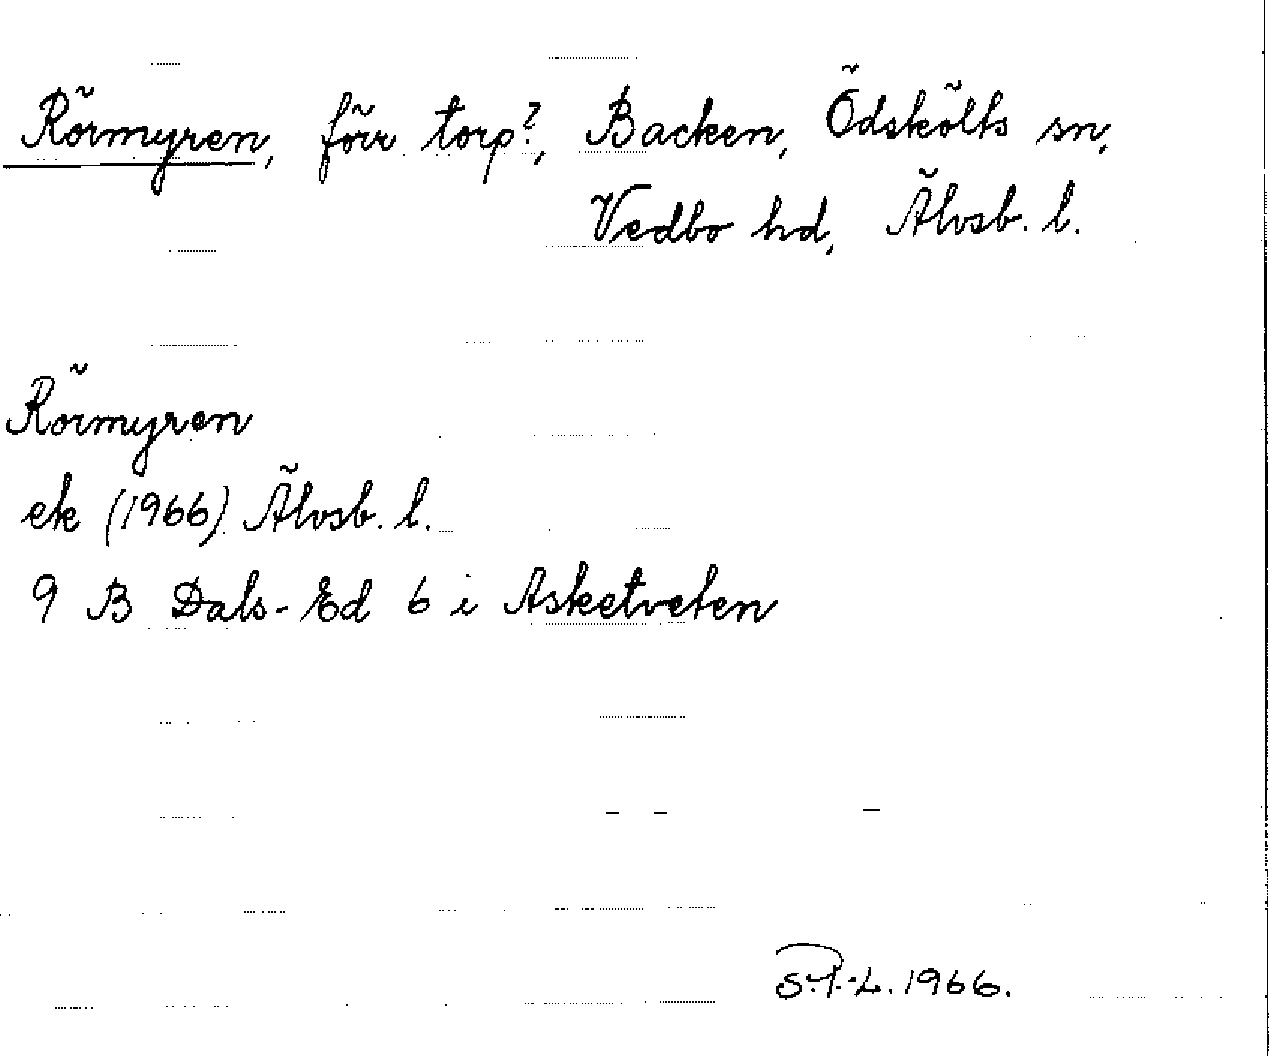 Rörmyren, förr torp?, Backen, Ödskölts sn,
Vedbo hd, Älvsb. l.
Rörmyren
ek (1966) Älvsb. l.
9 B Dals-Ed 6 i Asketveten
1966.